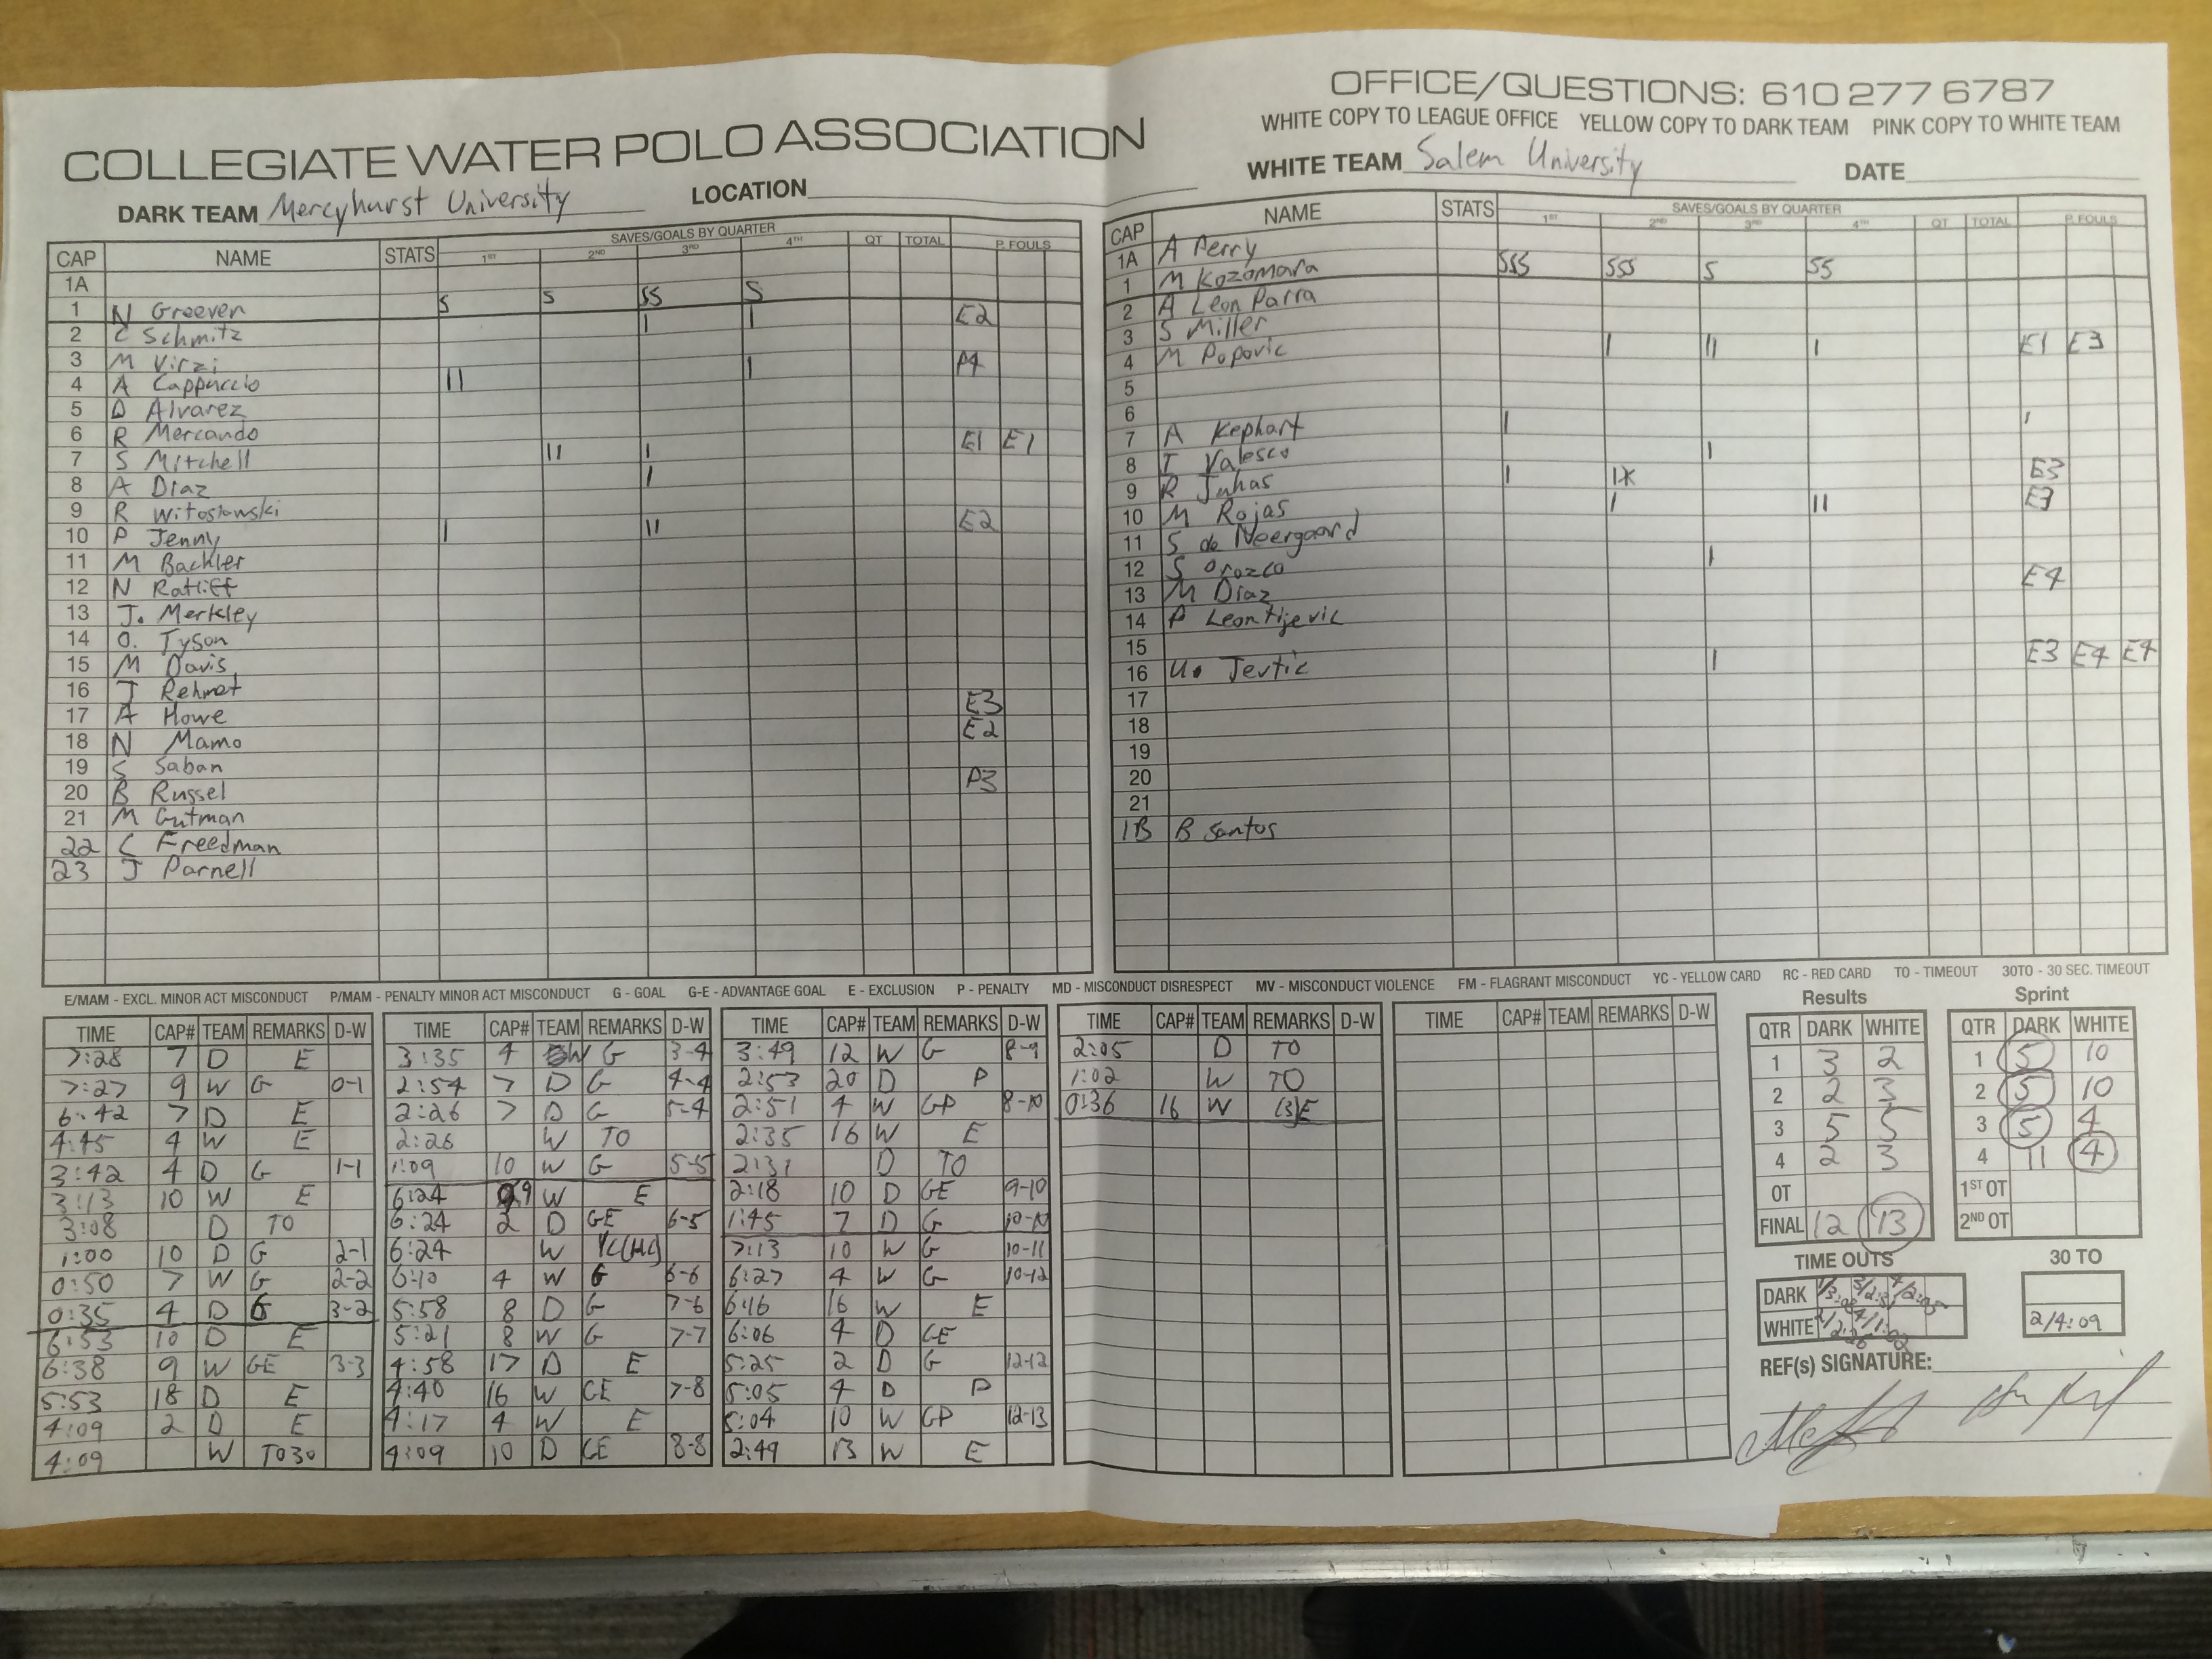 OFFICE/QUESTIONS: 610 277 6787
WHITE COPY TO LEAGUE OFFICE YELLOW COPY TO DARK TEAM PINK COPY TO WHITE TEAM
COLLEGIATE WATER POLO ASSOCIATION
DARK TEAM Mercyhurst University LOCATION
WHITE TEAM Salem University DATE
CAP NAME STATS SAVES/GOALS BY QUARTER 1ST 2ND 3RD 4TH QT TOTAL P. FOULS
1A
1 N Greever S S SS S
2 C Schmitz I I E2
3 M Virzi
4 A Cappuccio II I P4
5 D Alvarez
6 R Mercando
7 S Mitchell II I E1 E1
8 A Diaz I
9 R Witoslowski
10 P Jenny I II E2
11 M Backler
12 N Ratliff
13 J. Merkley
14 O. Tyson
15 M Davis
16 J Rehmet
17 A Howe E3
18 N Mamo E2
19 S Saban
20 B Russel P3
21 M Gutman
22 C Freedman
23 J Parnell
CAP NAME STATS SAVES/GOALS BY QUARTER 1ST 2ND 3RD 4TH QT TOTAL P. FOULS
1A A Perry
1 M Kozomara SSS SSS S SS
2 A Leon Parra
3 S Miller
4 M Popovic I II I E1 E3
5
6
7 A Kephart I
8 I Valesco I
9 R Juhas I IX E3
10 M Rojas I II E3
11 S de Neergaard
12 S Orozco I
13 M Diaz E4
14 P Leontijevic
15
16 U. Jevtic I E3 E4 E4
17
18
19
20
21
1B B Santos
E/MAM - EXCL. MINOR ACT MISCONDUCT P/MAM - PENALTY MINOR ACT MISCONDUCT G - GOAL G-E - ADVANTAGE GOAL E - EXCLUSION P - PENALTY MD - MISCONDUCT DISRESPECT MV - MISCONDUCT VIOLENCE FM - FLAGRANT MISCONDUCT YC - YELLOW CARD RC - RED CARD TO - TIMEOUT 30TO - 30 SEC. TIMEOUT
TIME CAP# TEAM REMARKS D-W
7:28 7 D E
7:27 9 W G 0-1
6:42 7 D E
4:45 4 W E
3:42 4 D G 1-1
3:13 10 W E
3:08 D TO
1:00 10 D G 2-1
0:50 7 W G 2-2
0:35 4 D G 3-2
6:53 10 D E
6:38 9 W GE 3-3
5:53 18 D E
4:09 2 D E
4:09 W TO30
TIME CAP# TEAM REMARKS D-W
3:35 4 W G 3-4
2:54 7 D G 4-4
2:26 7 D G 5-4
2:26 W TO
1:09 10 W G 5-5
6:24 9 W E
6:24 2 D GE 6-5
6:24 W YC(HC)
6:10 4 W G 6-6
5:58 8 D G 7-6
5:21 8 W G 7-7
4:58 17 D E
4:40 16 W GE 7-8
4:17 4 W E
4:09 10 D GE 8-8
TIME CAP# TEAM REMARKS D-W
3:49 12 W G 8-9
2:53 20 D P
2:51 4 W GP 8-10
2:35 16 W E
2:31 D TO
2:18 10 D GE 9-10
1:45 7 D G 10-10
7:13 10 W G 10-11
6:27 4 W G 10-12
6:16 16 W E
6:06 4 D GE
5:25 2 D G 12-12
5:05 4 D P
5:04 10 W GP 12-13
2:49 13 W E
TIME CAP# TEAM REMARKS D-W
2:05 D TO
1:02 W TO
0:36 16 W (3)E
TIME CAP# TEAM REMARKS D-W
Results
QTR DARK WHITE
1 3 2
2 2 3
3 5 5
4 2 3
OT
FINAL 12 13
Sprint
QTR DARK WHITE
1 5 10
2 5 10
3 5 4
4 11 4
1ST OT
2ND OT
TIME OUTS
DARK 1/3:08 3/2:31 4/2:05
WHITE 2/2:26 4/1:02
30 TO
2/4:09
REF(s) SIGNATURE: